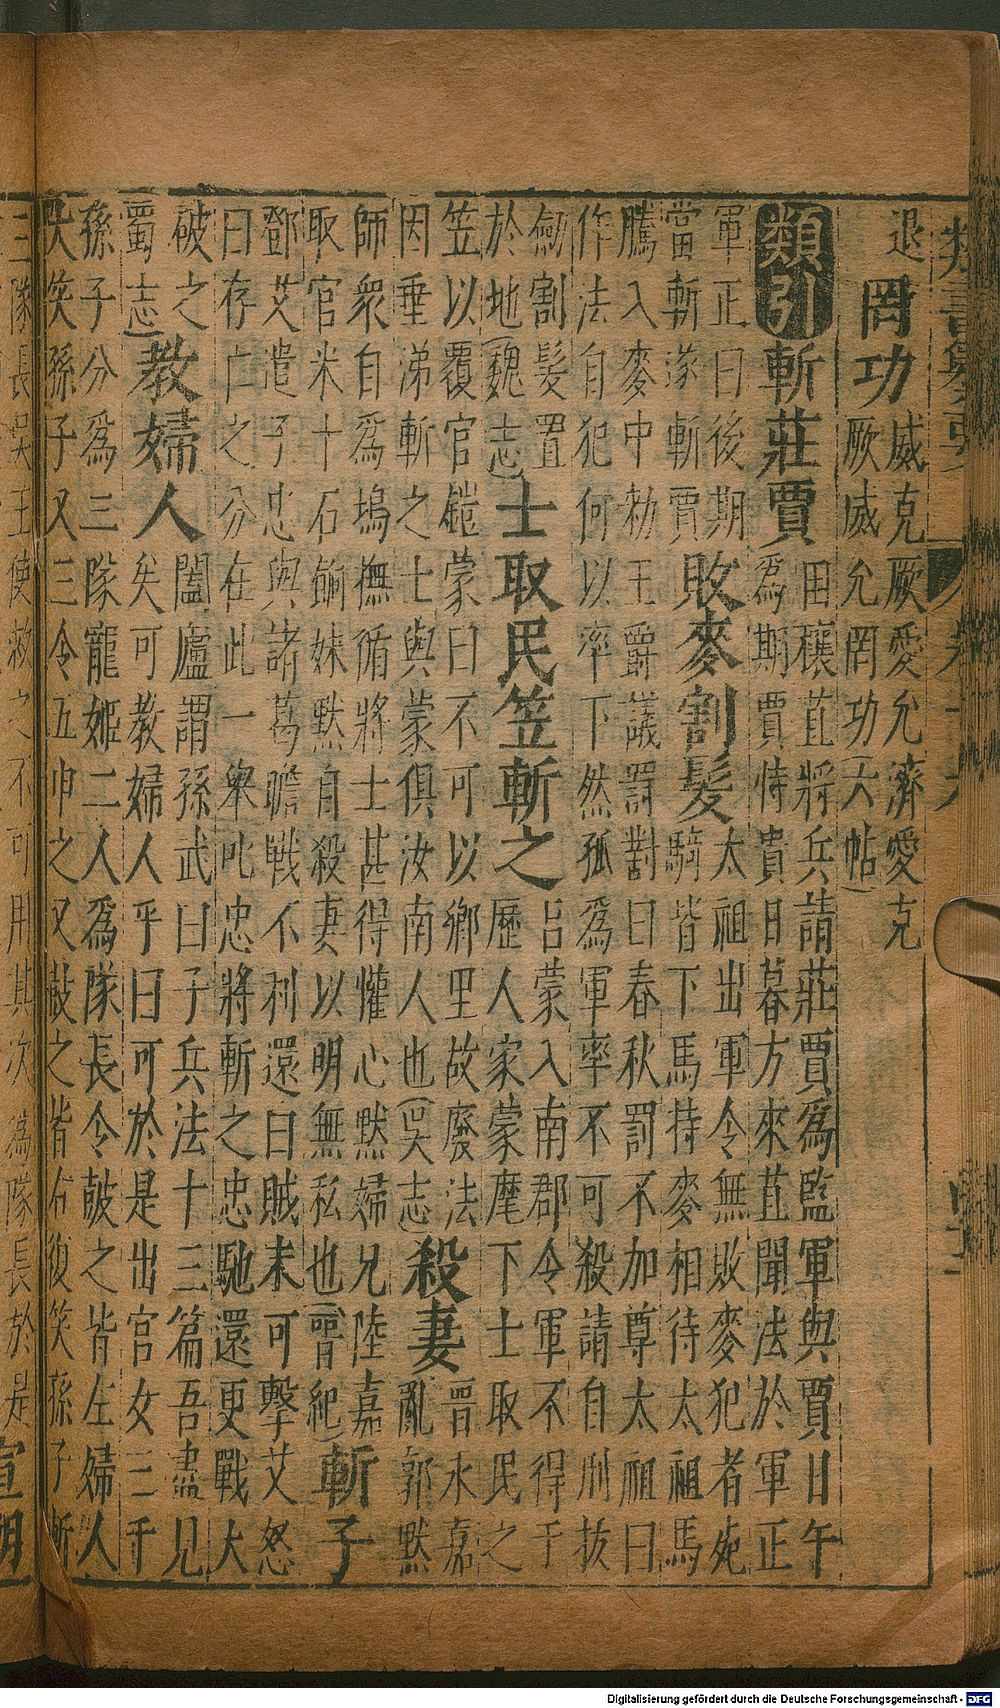 退 罔功 威克厥愛允濟愛克
厥威允罔功(六帖)
類引 斬莊賈 田穰苴將兵請莊賈爲監軍與賈日午
爲期賈恃貴日暮方來苴聞法於軍正
軍正曰後期
當斬遂斬賈 敗麥割髮 太祖出軍令無敗麥犯者死
騎皆下馬持麥相待太祖馬
騰入麥中勑王爵議罰對曰春秋罰不加尊太祖曰
作法自犯何以率下然孤爲軍率不可殺請自刑拔
劒割髮置
於地(魏志) 士取民笠斬之 呂蒙入南郡令軍不得干
歷人家蒙麾下士取民之
笠以覆官鎧蒙曰不可以鄉里故廢法
因垂涕斬之士與蒙俱汝南人也(吳志) 殺妻 晉永嘉
亂郭默
師衆自爲塢撫循將士甚得懽心默婦兄陸嘉
取官米十石餉妹默自殺妻以明無私也(晉紀) 斬子
鄧艾遣子忠與諸葛瞻戰不利還曰賊未可擊艾怒
曰存仁之分在此一舉叱忠將斬之忠馳還更戰大
破之
蜀志) 教婦人 闔廬謂孫武曰子兵法十三篇吾盡見
矣可教婦人乎曰可於是出宮女三千
孫子分爲三隊寵姬二人爲隊長令皷之皆左婦人
大笑孫子又三令五申之又皷之皆右復笑孫子斬
三隊長吳王使救之不可用其次爲隊長於是 宣明
Digitalisierung gefördert durch die Deutsche Forschungsgemeinschaft - DFG